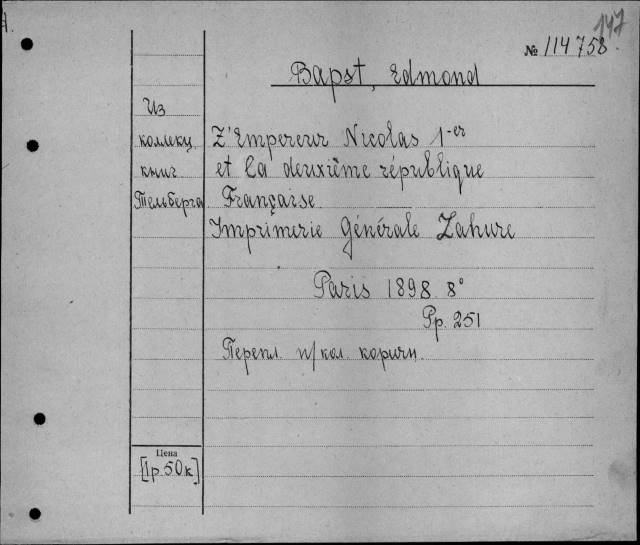 147
№ 114758.
Bapst, Edmond
Из
коллекц.
книг
Тельберга
L'Empereur Nicolas 1-er
et la deuxième république
Française
Imprimerie Générale Lahure
Paris 1898 8°
Pp. 251
Перепл. п/кол. коричн.
Цена
[1р.50к]